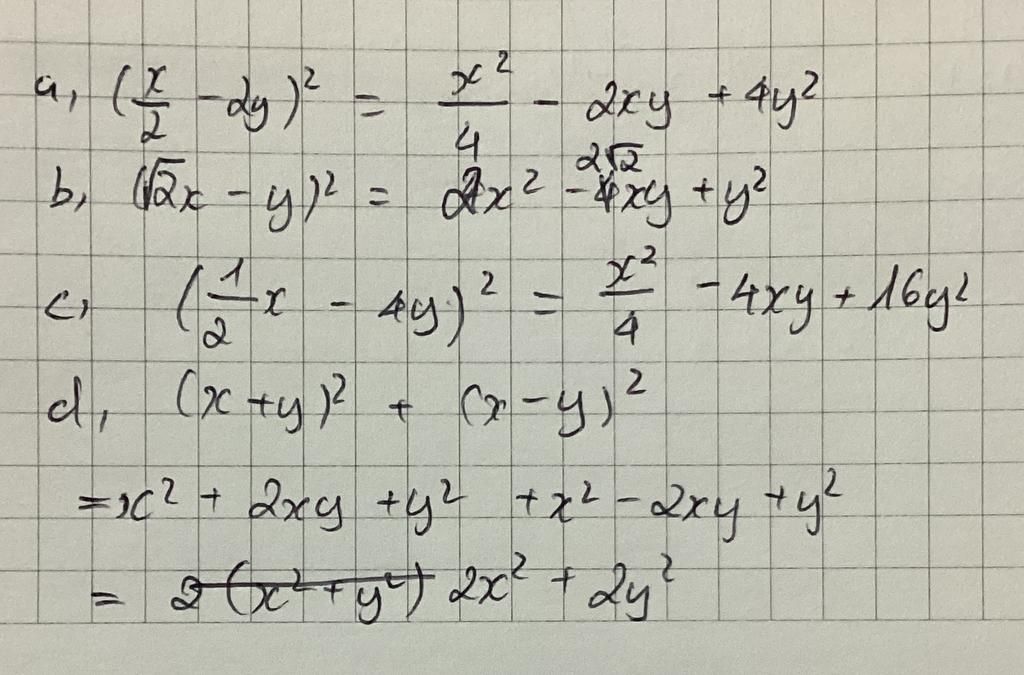 a, (x/2 - 2y)² = x²/4 - 2xy + 4y²
b, (√2x - y)² = 2x² - 2√2xy + y²
c, (1/2x - 4y)² = x²/4 - 4xy + 16y²
d, (x+y)² + (x-y)²
= x² + 2xy + y² + x² - 2xy + y²
= 2(x² + y²) 2x² + 2y²